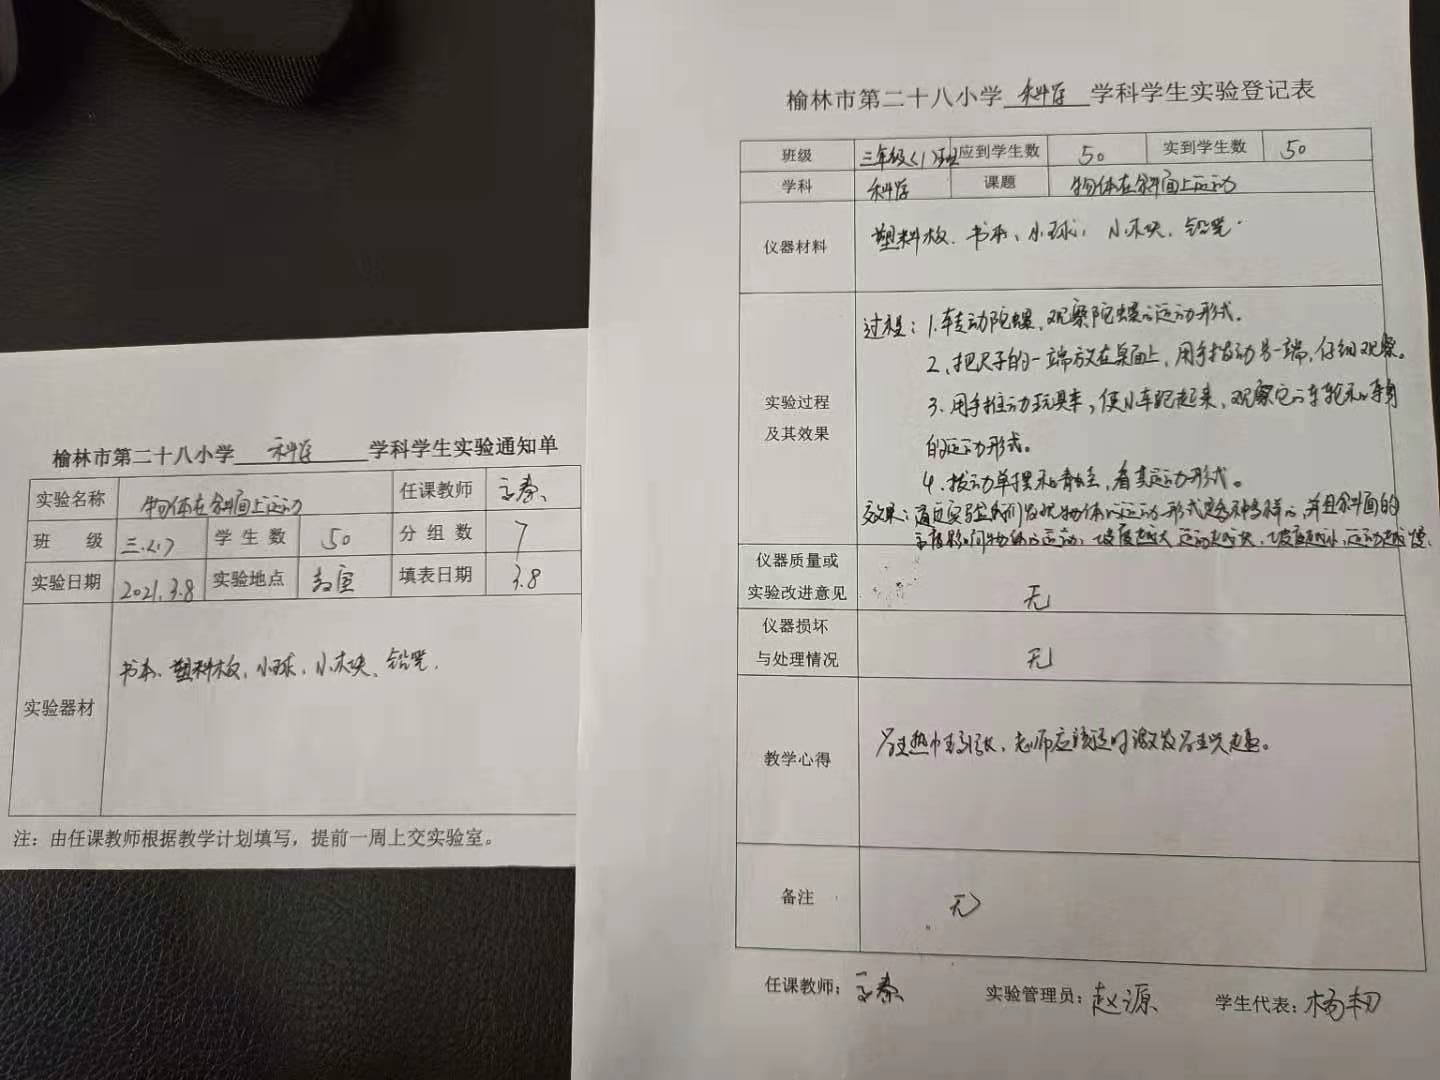 榆林市第二十八小学 科学 学科学生实验通知单
实验名称 物体在斜面上运动 任课教师
班 级 三.(1) 学 生 数 50 分 组 数 7
实验日期 2021.3.8 实验地点 教室 填表日期 3.8
实验器材 书本、塑料板、小球、小木块、铅笔.
注：由任课教师根据教学计划填写，提前一周上交实验室。
榆林市第二十八小学 科学 学科学生实验登记表
班级 三年级(1)班 应到学生数 50 实到学生数 50
学科 科学 课题 物体在斜面上运动
仪器材料 塑料板、书本、小球、小木块、铅笔.
实验过程
及其效果
过程：1.转动陀螺，观察陀螺的运动形式。
2、把尺子的一端放在桌面上，用手拨动另一端，仔细观察。
3、用手推动玩具车，使小车跑起来，观察它的车轮和车身
的运动形式。
4、拨动单摆和，看其运动形式。
效果：通过实验我们发现物体的运动形式是多种多样的，并且斜面的
高度影响物体的运动，坡度越大运动越快，坡度越小，运动越慢。
仪器质量或
实验改进意见 无
仪器损坏
与处理情况 无
教学心得 学生热情高涨，老师应该适时激发学生兴趣。
备注 无
任课教师： 实验管理员：赵源 学生代表：杨